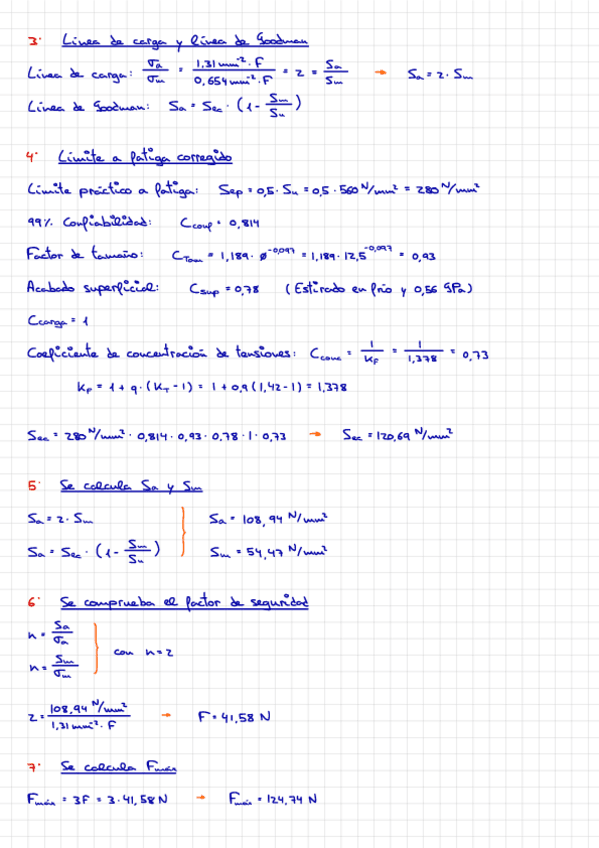 3· Línea de carga y línea de Goodman
Línea de carga: σa/σm = 1,31 mm⁻²·F / 0,654 mm⁻²·F = 2 = Sa/Sm → Sa = 2·Sm
Línea de Goodman: Sa = Sec · (1 - Sm/Su)
4· Límite a fatiga corregido
Límite práctico a fatiga: Sep = 0,5·Su = 0,5·560 N/mm² = 280 N/mm²
99% Confiabilidad: Cconf = 0,814
Factor de tamaño: CTam = 1,189·ø^-0,097 = 1,189·12,5^-0,097 = 0,93
Acabado superficial: Csup = 0,78 (Estirado en frío y 0,56 GPa)
Ccarga = 1
Coeficiente de concentración de tensiones: Cconc = 1/KF = 1/1,378 = 0,73
KF = 1 + q·(KT - 1) = 1 + 0,9(1,42 - 1) = 1,378
Sec = 280 N/mm² · 0,814 · 0,93 · 0,78 · 1 · 0,73 → Sec = 120,69 N/mm²
5· Se calcula Sa y Sm
Sa = 2·Sm Sa = 108,94 N/mm²
Sa = Sec · (1 - Sm/Su) Sm = 54,47 N/mm²
6· Se comprueba el factor de seguridad
n = Sa/σa
con n = 2
n = Sm/σm
2 = 108,94 N/mm² / 1,31 mm⁻²·F → F = 41,58 N
7· Se calcula Fmáx
Fmáx = 3F = 3·41,58 N → Fmáx = 124,74 N